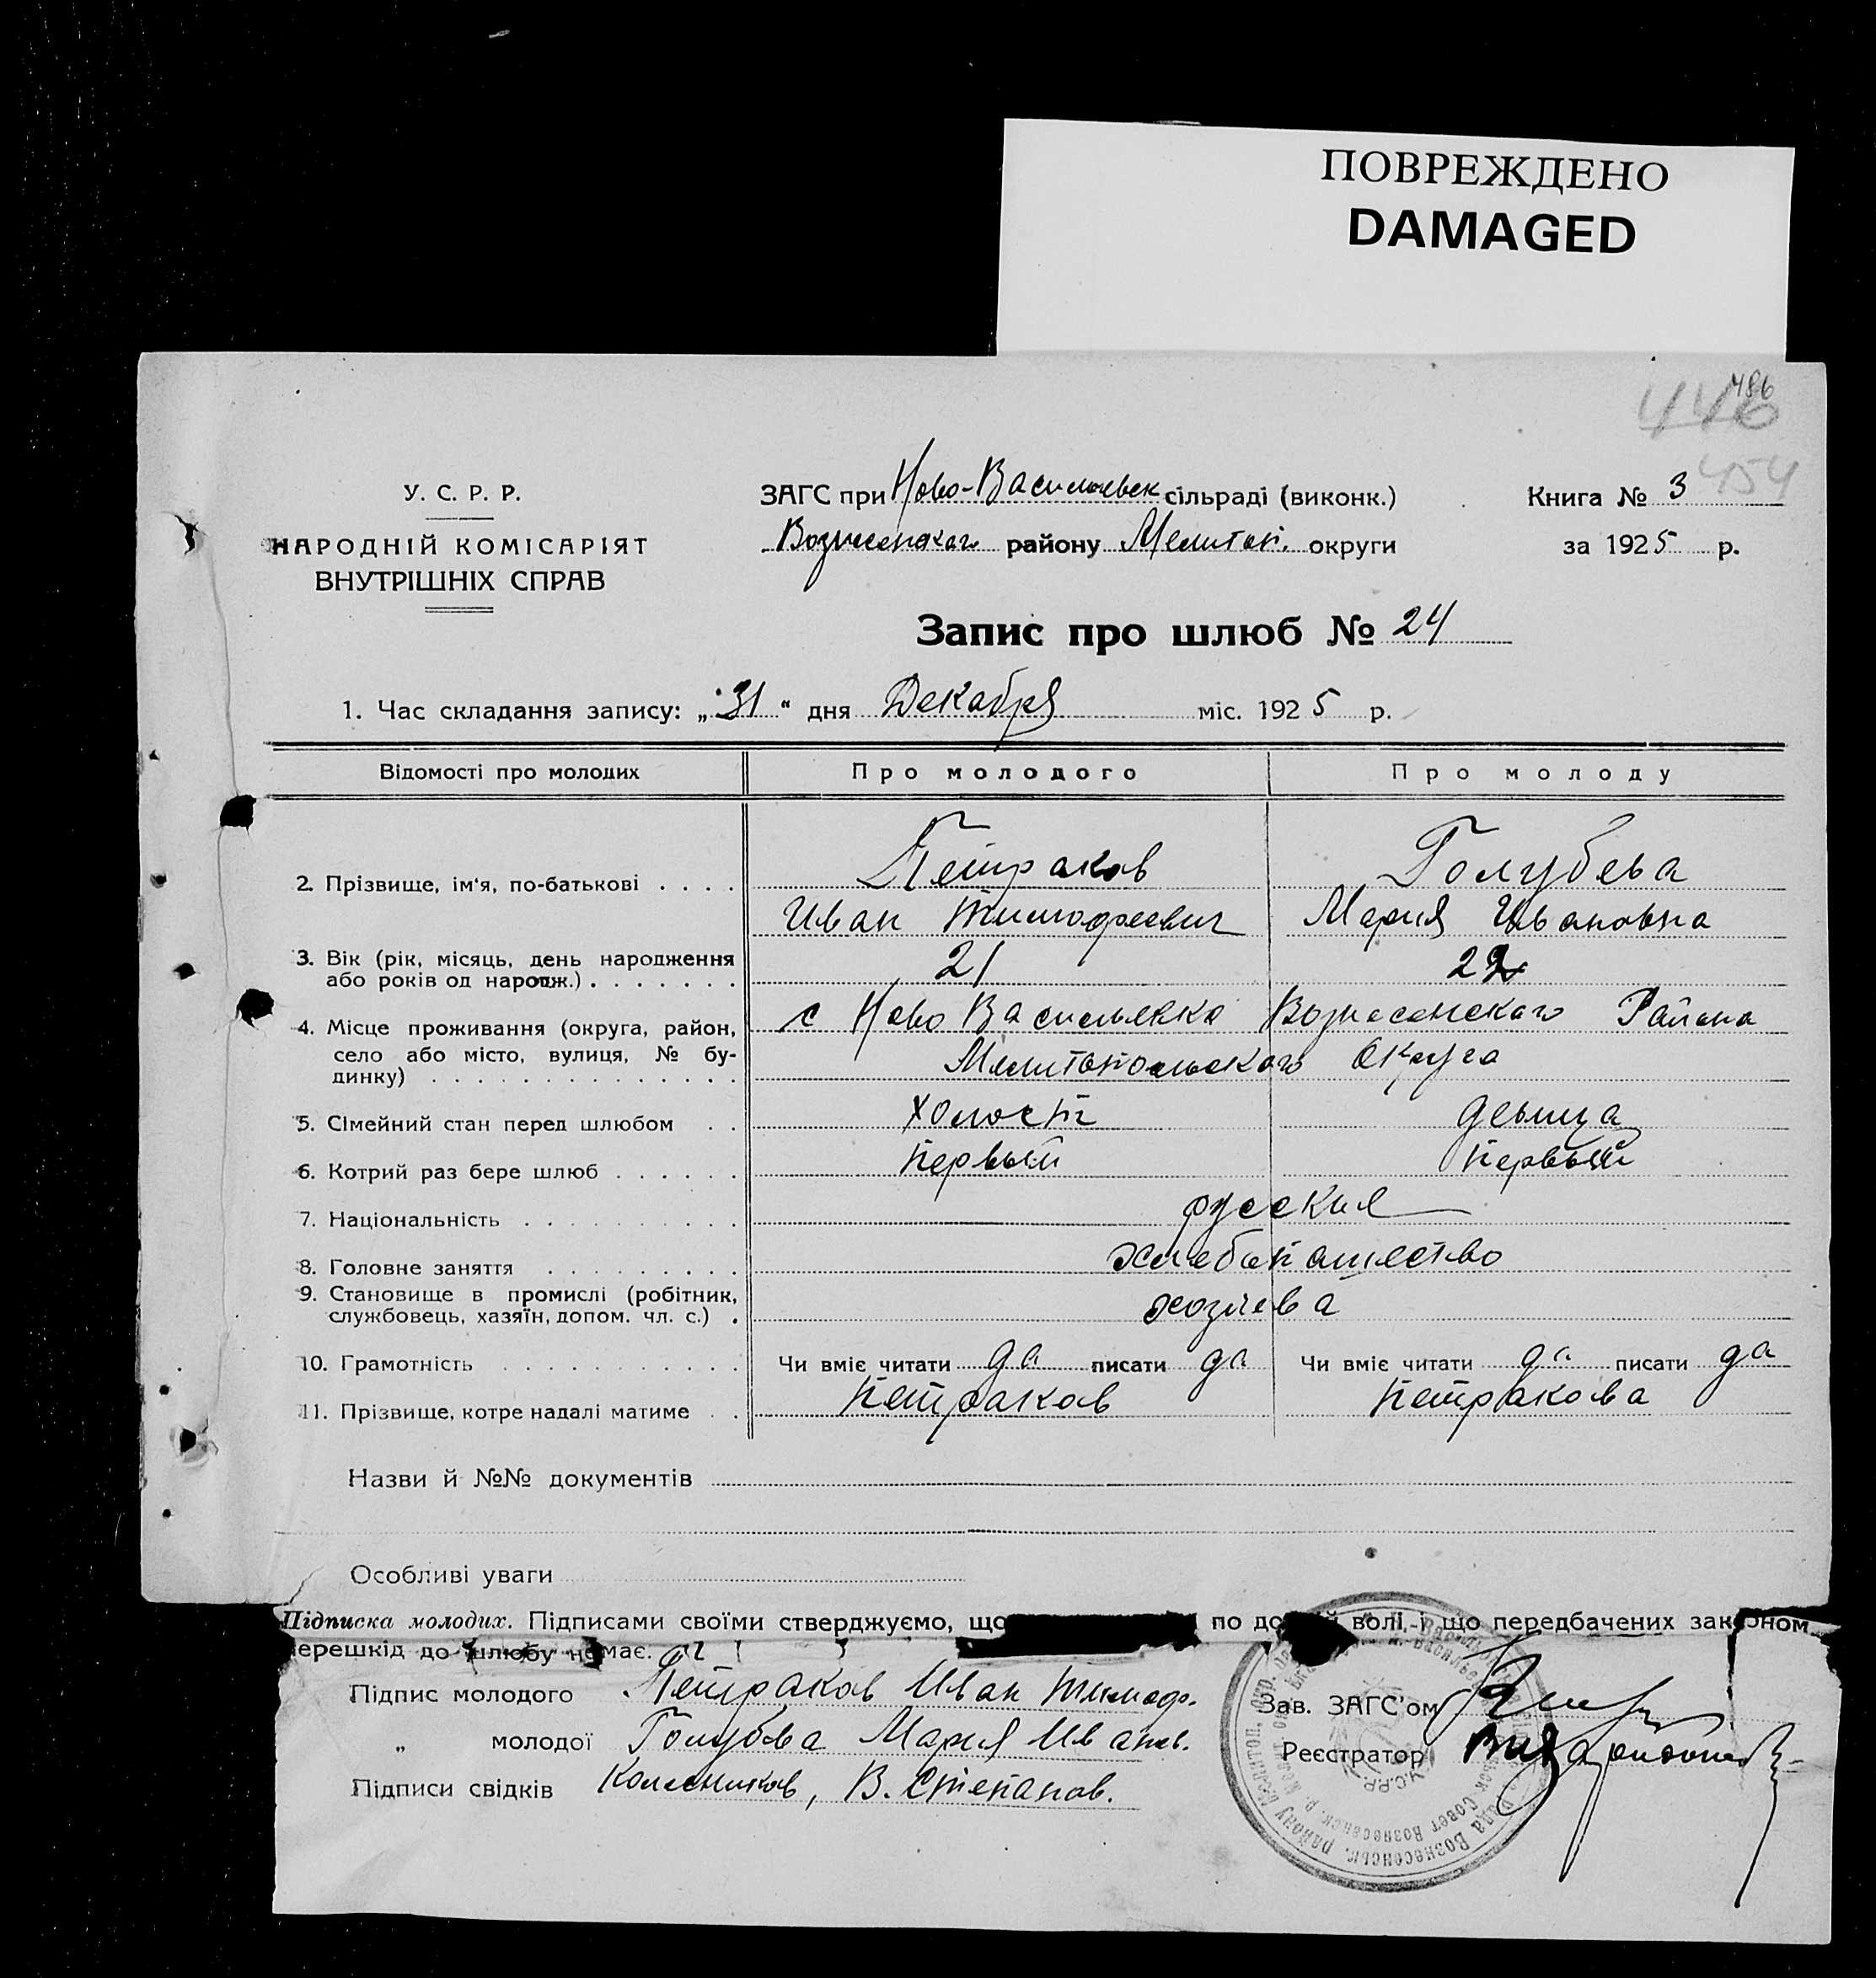 ПОВРЕЖДЕНО
DAMAGED
486
446
454
У. С. Р. Р.
НАРОДНІЙ КОМІСАРІЯТ
ВНУТРІШНІХ СПРАВ
ЗАГС при Ново-Васильевск сільраді (виконк.)
Вознесенского району Мелитоп. округи
Книга № 3
за 1925 р.
Запис про шлюб № 24
1. Час складання запису: „31“ дня Декабря міс. 1925 р.
Відомості про молодих Про молодого Про молоду
2. Прізвище, ім'я, по-батькові . . . . Петраков Голубева
Иван Тимофеевич Мария Ивановна
3. Вік (рік, місяць, день народження
або років од народж.) . . . . . . . 21 22
4. Місце проживання (округа, район, с Ново Васильевка Вознесенского Района
село або місто, вулиця, № бу-
динку) . . . . . . . . . . . . . . Мелитопольского Округа
5. Сімейний стан перед шлюбом . . холост девица
6. Котрий раз бере шлюб . . . . . . Первый Первый
7. Національність . . . . . . . . . . русския
8. Головне заняття . . . . . . . . . хлебопашество
9. Становище в промислі (робітник,
службовець, хазяїн, допом. чл. с.) . хозяева
10. Грамотність . . . . . . . . . . . Чи вміє читати да писати да Чи вміє читати да писати да
11. Прізвище, котре надалі матиме . . Петраков Петракова
Назви й №№ документів
Особливі уваги
Підписка молодих. Підписами своїми стверджуємо, що по до й волі, і що передбачених законом
перешкід до шлюбу немає.
Підпис молодого Петраков Иван Тимоф.
„ молодої Голубова Мария Иванов.
Підписи свідків Колесников, В. Степанов.
Зав. ЗАГС'ом
Реєстратор
У.С.Р.Р.